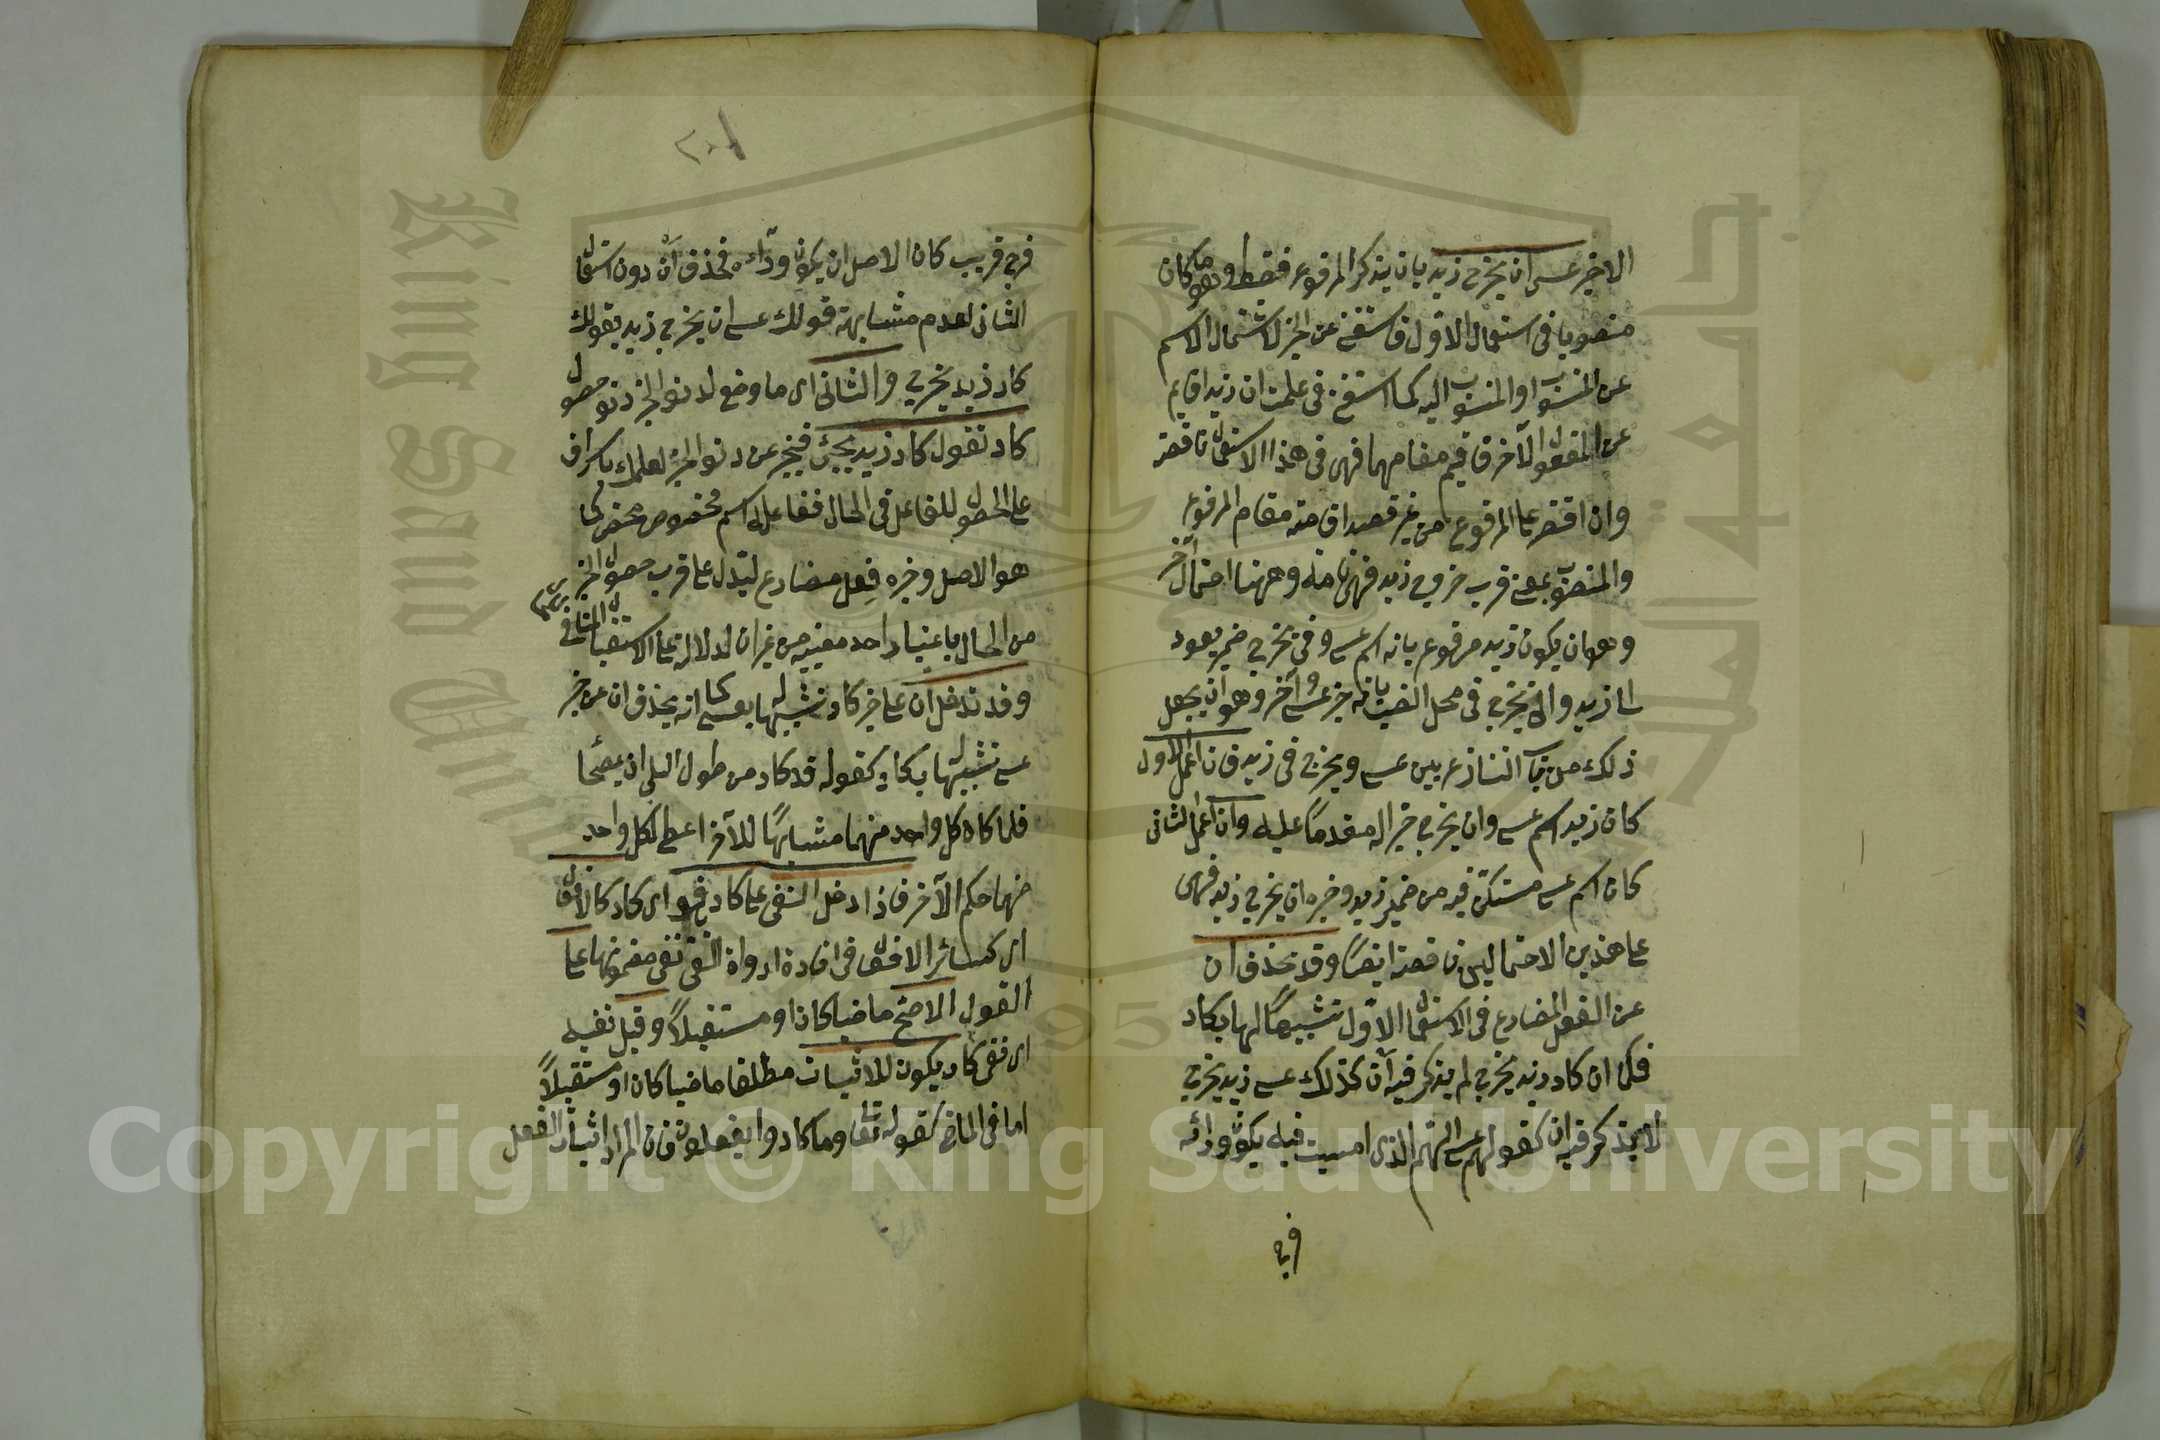 الاخير عسى ان يخرج زيد بان يذكر المرفوع فقط وهو ما كان
منصوبا فى استعمال الاول فاستغنى عن الخبر لاشتمال الاسم
عن المنسوب او المنسوب اليه كما استغنى فى علمت ان زيدا قايم
عن المفعول الآخر قايم مقامهما فهى فى هذا الاستعمال ناقصة
وان اقتصر على المرفوع من غير قصد اقامته مقام المرفوع
والمنصوب بمعنى قرب خروج زيد فهى تامة وههنا احتمال آخر
وهو ان يكون زيد مرفوع بانه اسم عسى وفى يخرج ضمير يعود
الى زيد وان يخرج فى محل النصب بانه خبر عسى وآخر وهو ان يجعل
ذلك من باب التنازع بين عسى ويخرج فى زيد فان اعمل الاول
كان زيد اسم عسى وان يخرج خبر اله مقدما عليه وان اعمل الثانى
كان اسم عسى مستكن فيه من ضمير زيد وخبره ان يخرج زيد فهى
على هذين الاحتمالين ناقصة ايضا وقد يحذف ان
عن الفعل المضارع فى الاستعمال الاول تشبيها لها بكاد
فكما ان كاد زيد يخرج لم يذكر فيه ان كذلك عسى زيد يخرج
لا يذكر فيه ان كقولهم عسى الهم الذى امسيت فيه يكون ورائه
فرج
٢٠٨
فرج قريب كان الاصل ان يكون ورائه فحذف ان دون استعمال
الثانى لعدم مشابهة قولك عسى ان يخرج زيد بقولك
كاد زيد يخرج والثانى اى ما وضع لدنو الخبر دنو حصول
كاد تقول كاد زيد يجيئ فيخبر عن دنو الخبر لعلمك باشراف
على الحصول للفاعل فى الحال ففاعله اسم مخصوص محض كما
هو الاصل وخبره فعل مضارع ليدل على قرب حصول الخبر
من الحال باعتبار احد معنييه من غير ان لدلالة على الاستقبال المنافى
وقد تدخل ان على خبر كاد تشبيها له بعسى كما انه يحذف ان عن خبر
عسى تشبيها له بكاد كقوله قد كاد من طول البلى ان يمصحا
فلما كان كل واحد منهما مشابها للآخر اعطى لكل واحد
منهما حكم الآخر فاذا دخل النفى على كاد فهو اى كاد كالافعال
اى كسائر الافعال فى افادة ادواة النفى نفى مضمونها على
القول الاصح ماضيا كان او مستقبلا وقيل نفيه
اى نفى كاد يكون للاثبات مطلقا ماضيا كان او مستقبلا
اما فى الماضى كقوله تعالى وما كادوا يفعلون فان المراد اثبات الفعل
King Saud University
جامعة الملك سعود
1957
Copyright © King Saud University